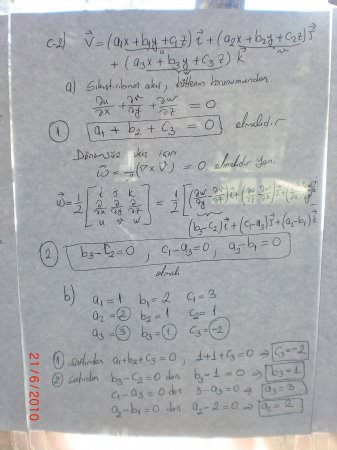 C-2) V⃗ = (a₁x + b₁y + c₁z) i⃗ + (a₂x + b₂y + c₂z) j⃗
+ (a₃x + b₃y + c₃z) k⃗
a) Sıkıştırılamaz akış, kütlenin korunumundan
∂u/∂x + ∂v/∂y + ∂w/∂z = 0
① a₁ + b₂ + c₃ = 0 olmalıdır
Dönümsüz akış için
ω⃗ = 1/2 (∇ × V⃗) = 0 olmalıdır yani
(b₃-c₂) i⃗ + (c₁-a₃) j⃗ + (a₂-b₁) k⃗
② b₃-c₂=0 , c₁-a₃=0 , a₂-b₁=0
olmalı
b) a₁=1 b₁=2 c₁=3
a₂=② b₂=1 c₂=1
a₃=③ b₃=① c₃=-2
① a₁+b₂+c₃=0 , 1+1+c₃=0 ⇒ c₃=-2
② b₃-c₂=0 dan b₃-1=0 ⇒ b₃=1
c₁-a₃=0 dan 3-a₃=0 ⇒ a₃=3
a₂-b₁=0 dan a₂-2=0 ⇒ a₂=2
21/6/2010